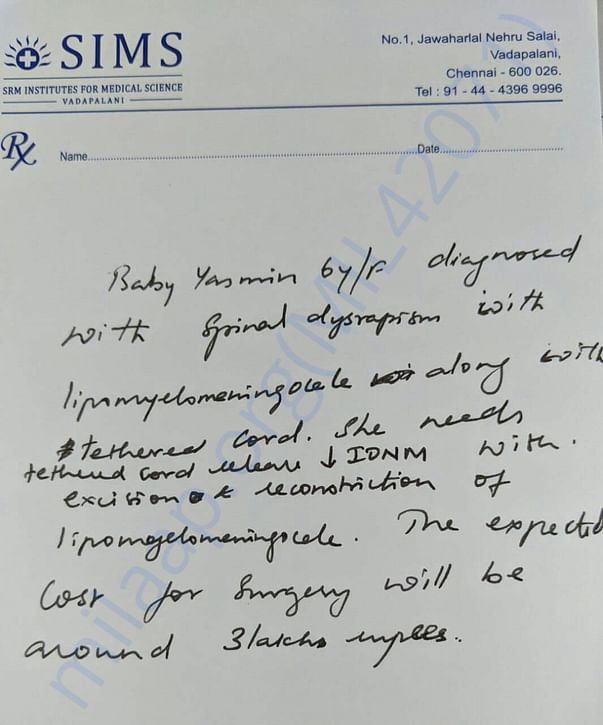 SIMS
SRM INSTITUTES FOR MEDICAL SCIENCE
VADAPALANI
No.1, Jawaharlal Nehru Salai,
Vadapalani,
Chennai - 600 026.
Tel : 91 - 44 - 4396 9996
Rx
Name............................Date............
Baby Yasmin 6y/F diagnosed
with Spinal dysrapism with
lipomyelomeningocele along with
tethered cord. She needs
tethered cord release ↓ IONM with
excision & reconstriction of
lipomyelomeningocele. The expected
Cost for Surgery will be
around 3 lakhs rupees.
milaap.org(MIL420712)